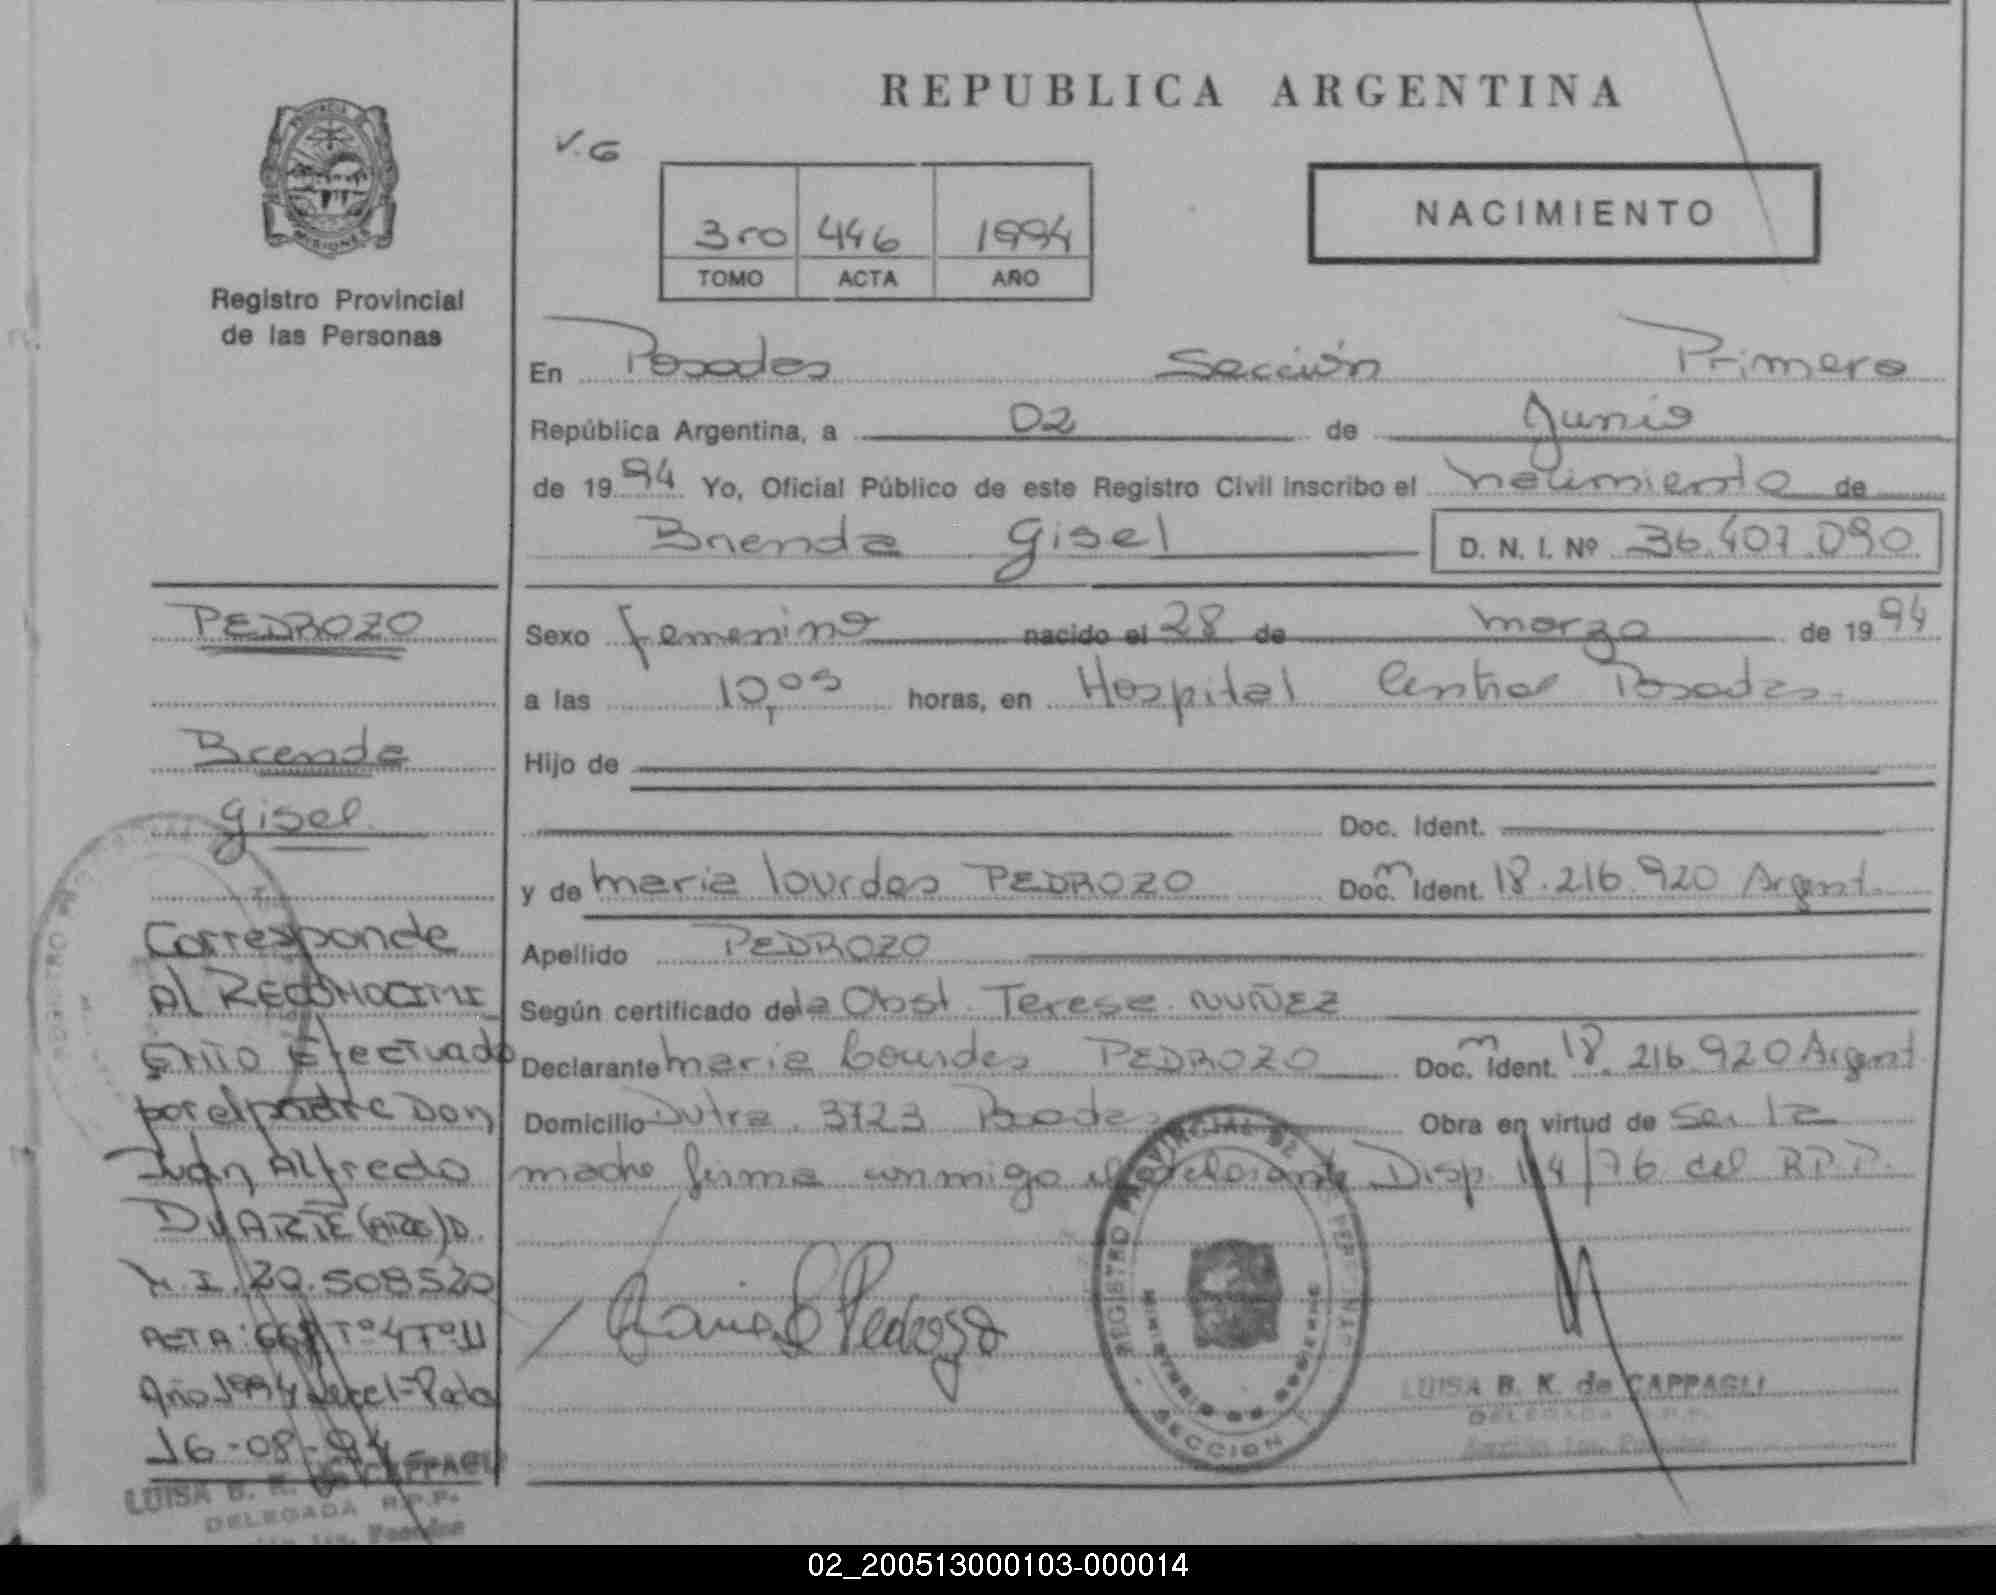 REPUBLICA ARGENTINA
V.G
3ro 446 1994
TOMO ACTA AÑO
NACIMIENTO
PROVINCIA
MISIONES
Registro Provincial
de las Personas
En Posadas Sección Primera
República Argentina, a 02 de Junio
de 1994 Yo, Oficial Público de este Registro Civil inscribo el nacimiento de
Brenda Gisel D. N. I. Nº 36.407.090
PEDROZO
Brenda
Gisel
Sexo femenino nacido el 28 de marzo de 1994
a las 10,05 horas, en Hospital Central Posadas
Hijo de
Doc. Ident.
y de maria lourdes PEDROZO Doc. Ident. m 18.216.920 Argent.
Apellido PEDROZO
Según certificado de la Obst. Teresa NUÑEZ
Declarante maria Lourdes PEDROZO Doc. Ident. m 18.216.920 Argent
Domicilio Dutra 3723 Posadas Obra en virtud de ser la
madre firma conmigo el declarante Disp. 114/76 del R.P.P.
Corresponde
Al RECONOCIMI
ENTO Efectuado
por el padre Don
Juan Alfredo
DUARTE (ARG) D.
N.I. 20.508520
ACTA: 668 Tº4Tº11
Año 1994 Pda
16-08-94
LUISA B. K. de CAPPAGLI
DELEGADA R.P.P.
Posadas
Maria L Pedrozo
REGISTRO PROVINCIAL DE
MINISTERIO DE GOBIERNO
SECCION
LUISA B. K. de CAPPAGLI
DELEGADA R.P.P.
Sección 1ra. Posadas
02_200513000103-000014